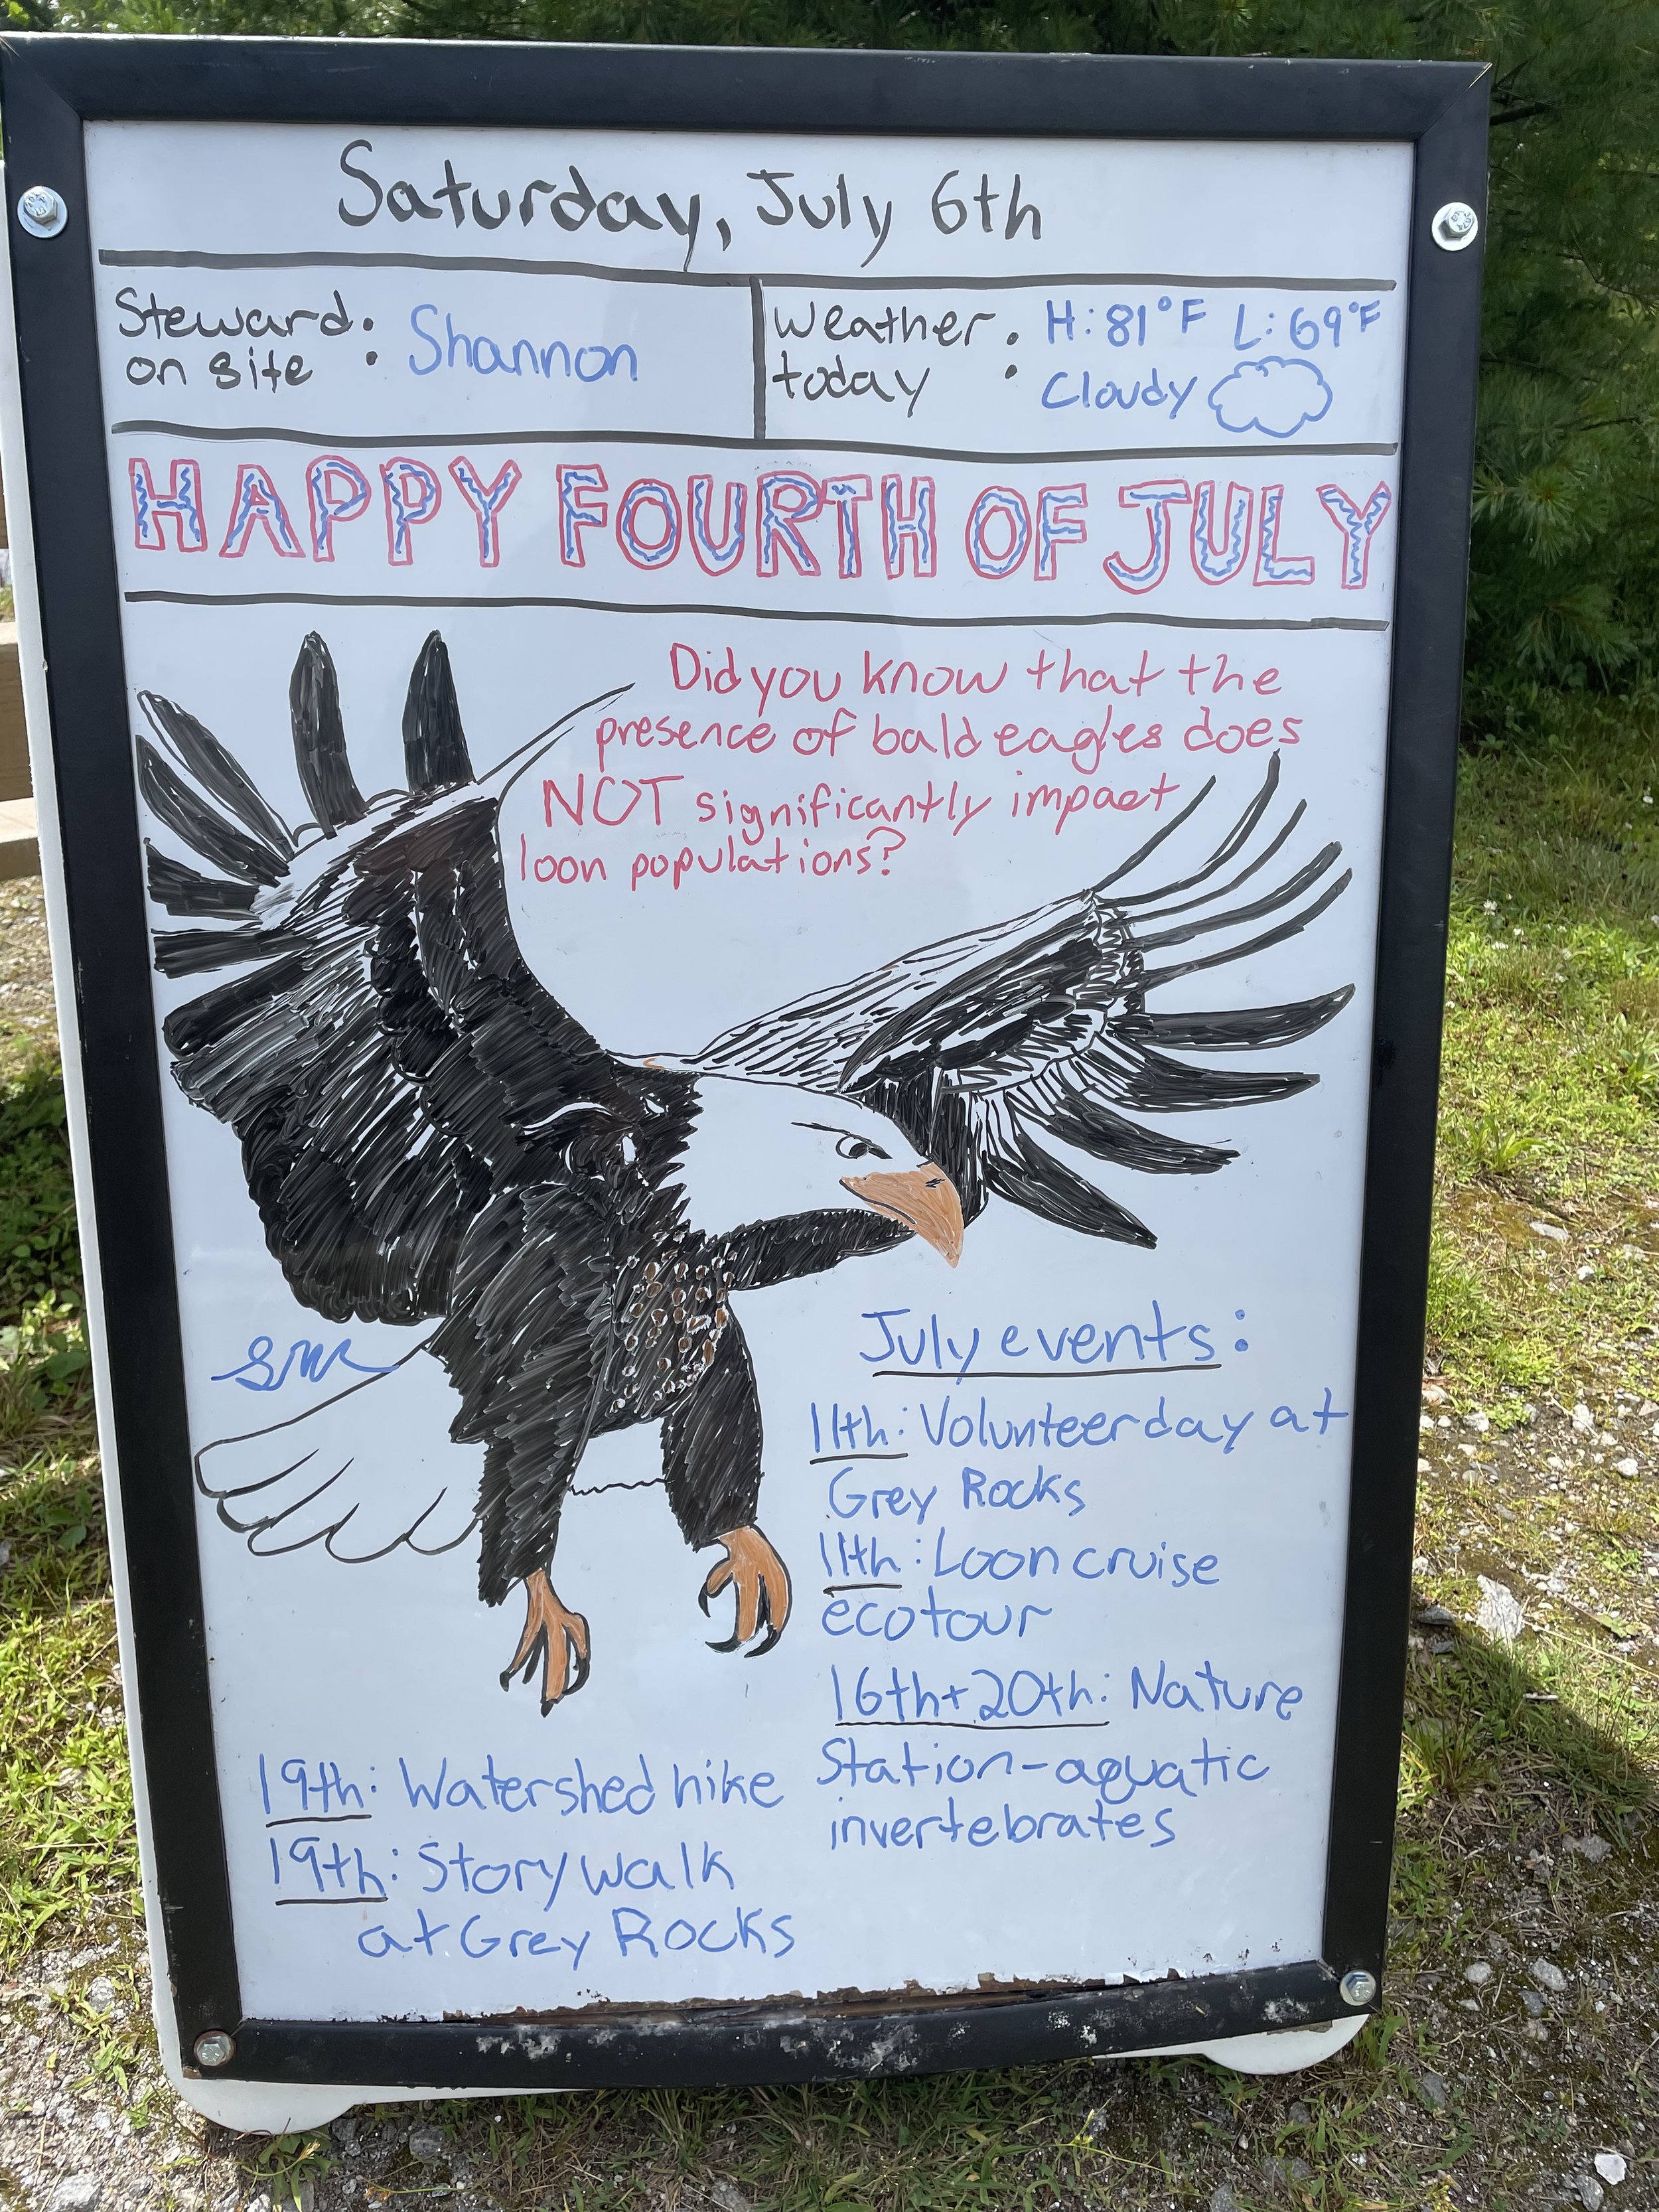 Saturday, July 6th
Steward
on site : Shannon
Weather
today : H: 81°F L: 69°F
Cloudy
HAPPY FOURTH OF JULY
Did you know that the
presence of bald eagles does
NOT significantly impact
loon populations?
July events:
11th: Volunteer day at
Grey Rocks
11th: Loon cruise
ecotour
16th+20th: Nature
Station-aquatic
invertebrates
19th: Watershed hike
19th: Story walk
at Grey Rocks